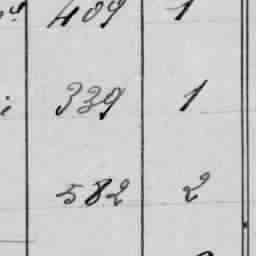 409 1
339 1
582 2